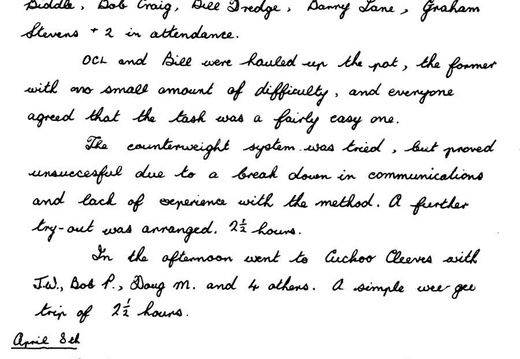 Biddle, Bob Craig, Bill Tredge, Barry Lane, Graham
Stevens + 2 in attendance.
OCL and Bill were hauled up the pot, the former
with no small amount of difficulty, and everyone
agreed that the task was a fairly easy one.
The counterweight system was tried, but proved
unsuccesful due to a break down in communications
and lack of experience with the method. A further
try-out was arranged. 2½ hours.
In the afternoon went to Cuckoo Cleeves with
J.W., Bob P., Doug M. and 4 others. A simple wee gee
trip of 2½ hours.
April 8th